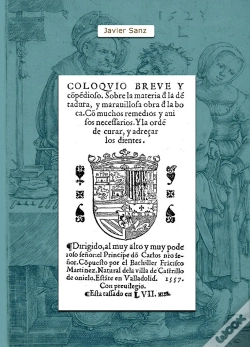 Javier Sanz
COLOQVIO BREVE Y
cōpēdioso. Sobre la materia đ la dē
tadura, y marauillosa obra đ la bo
ca. Cō muchos remedios y aui
sos necessarios. Y la ordē
de curar, y adreçar
los dientes.
¶Dirigido, al muy alto y muy pode
roso señor el Principe dō Carlos nr̄o se
ñor. Cōpuesto por el Bachiller Frācisco
Martinez. Natural dela villa de Castrillo
de onielo. Estāte en Valladolid. 1557.
Con preuilegio.
¶Esta tassado en LVII. mr̄s
wook